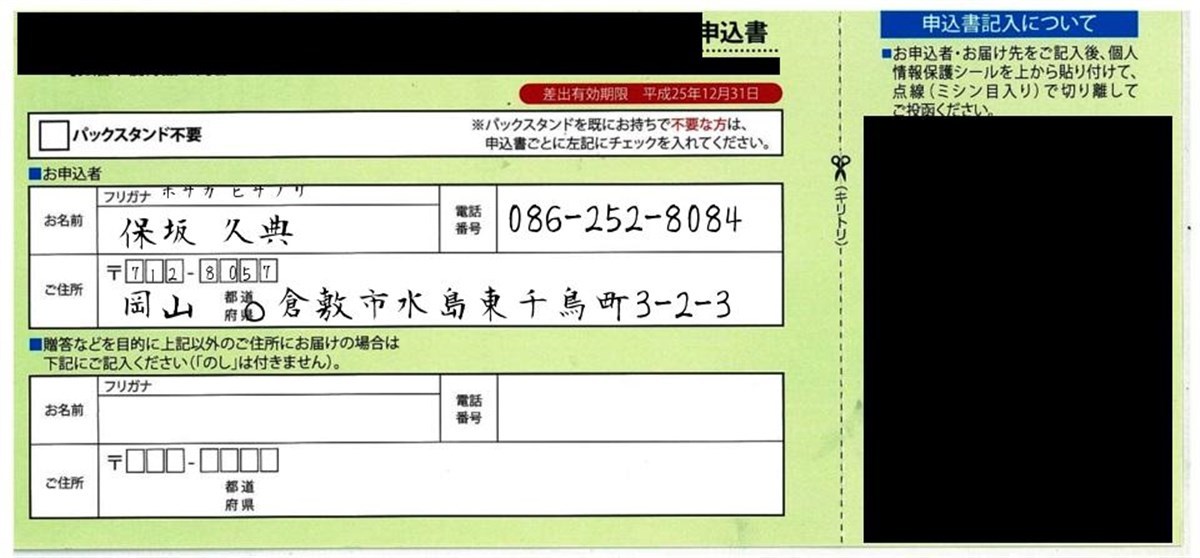 申込書
差出有効期限 平成25年12月31日
パックスタンド不要
※パックスタンドを既にお持ちで不要な方は、
申込書ごとに左記にチェックを入れてください。
■お申込者
お名前
フリガナ ホサカ ヒサノリ
保坂 久典
電話
番号
086-252-8084
ご住所
〒712-8057
岡山 都道
府県 倉敷市水島東千鳥町3-2-3
■贈答などを目的に上記以外のご住所にお届けの場合は
下記にご記入ください(「のし」は付きません)。
お名前
フリガナ
電話
番号
ご住所
〒 -
都道
府県
(キリトリ)
申込書記入について
■お申込者・お届け先をご記入後、個人
情報保護シールを上から貼り付けて、
点線(ミシン目入り)で切り離して
ご投函ください。